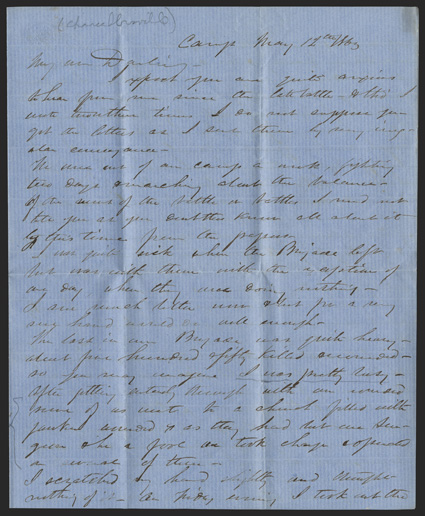 (Chancellorsville)
Camp May 12th /63
My own Darling -
I expect you are quite anxious
to hear from me since the late battle - & tho' I
wrote two other times I do not suppose you
got the letters as I sent them by very
conveyance -
We were out of our camp a week, fighting
two days & marching about the balance -
of the news of the battle or battles I need not
tell you as you doubtless know all about it
by this time from the papers
I was quite sick when the Brigade left
but was with them with the exception of
one day when they were doing nothing -
I am much better now & but for a very
sore hand would do well enough -
The loss in our Brigade was quite heavy -
about five hundred & fifty killed & wounded -
so you may imagine I was pretty busy -
After getting entirely through with our wounded
some of us went to a church filled with
yankee wounded & as they had but one Sur-
geon & he a poor one took charge & operated
on of them -
I scratched my hand slightly and thought
nothing of it - On Friday evening I took out the